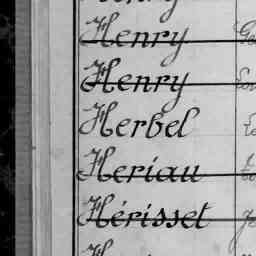 Henry
Henry
Herbel
Heriau
Hérisset